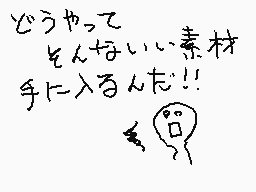 どうやって
そんないい素材
手に入るんだ!!